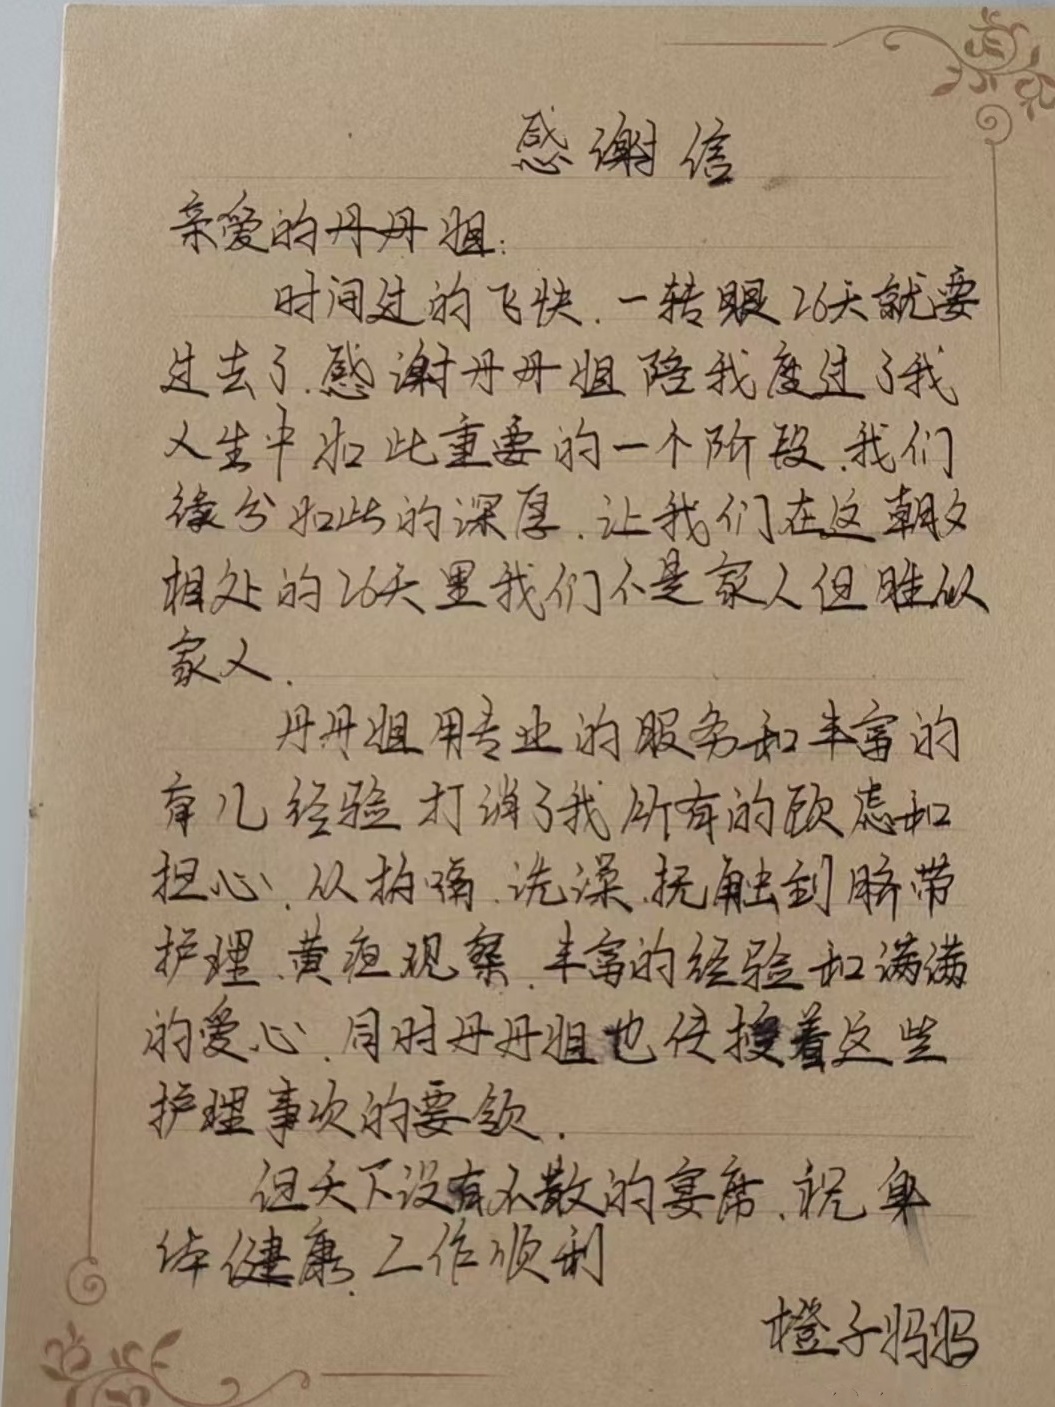 感谢信
亲爱的丹丹姐:
时间过的飞快.一转眼26天就要
过去了.感谢丹丹姐陪我度过了我
人生中如此重要的一个阶段.我们
缘兮如此的深厚.让我们在这朝夕
相处的26天里我们不是家人但胜似
家人.
丹丹姐用专业的服务和丰富的
育儿经验打消了我所有的顾虑和
担心.从拍嗝.洗澡.抚触到脐带
护理.黄疸观察.丰富的经验和满满
的爱心.同时丹丹姐也传授着这些
护理事次的要领.
但天下没有不散的宴席.祝身
体健康.工作顺利
橙子妈妈